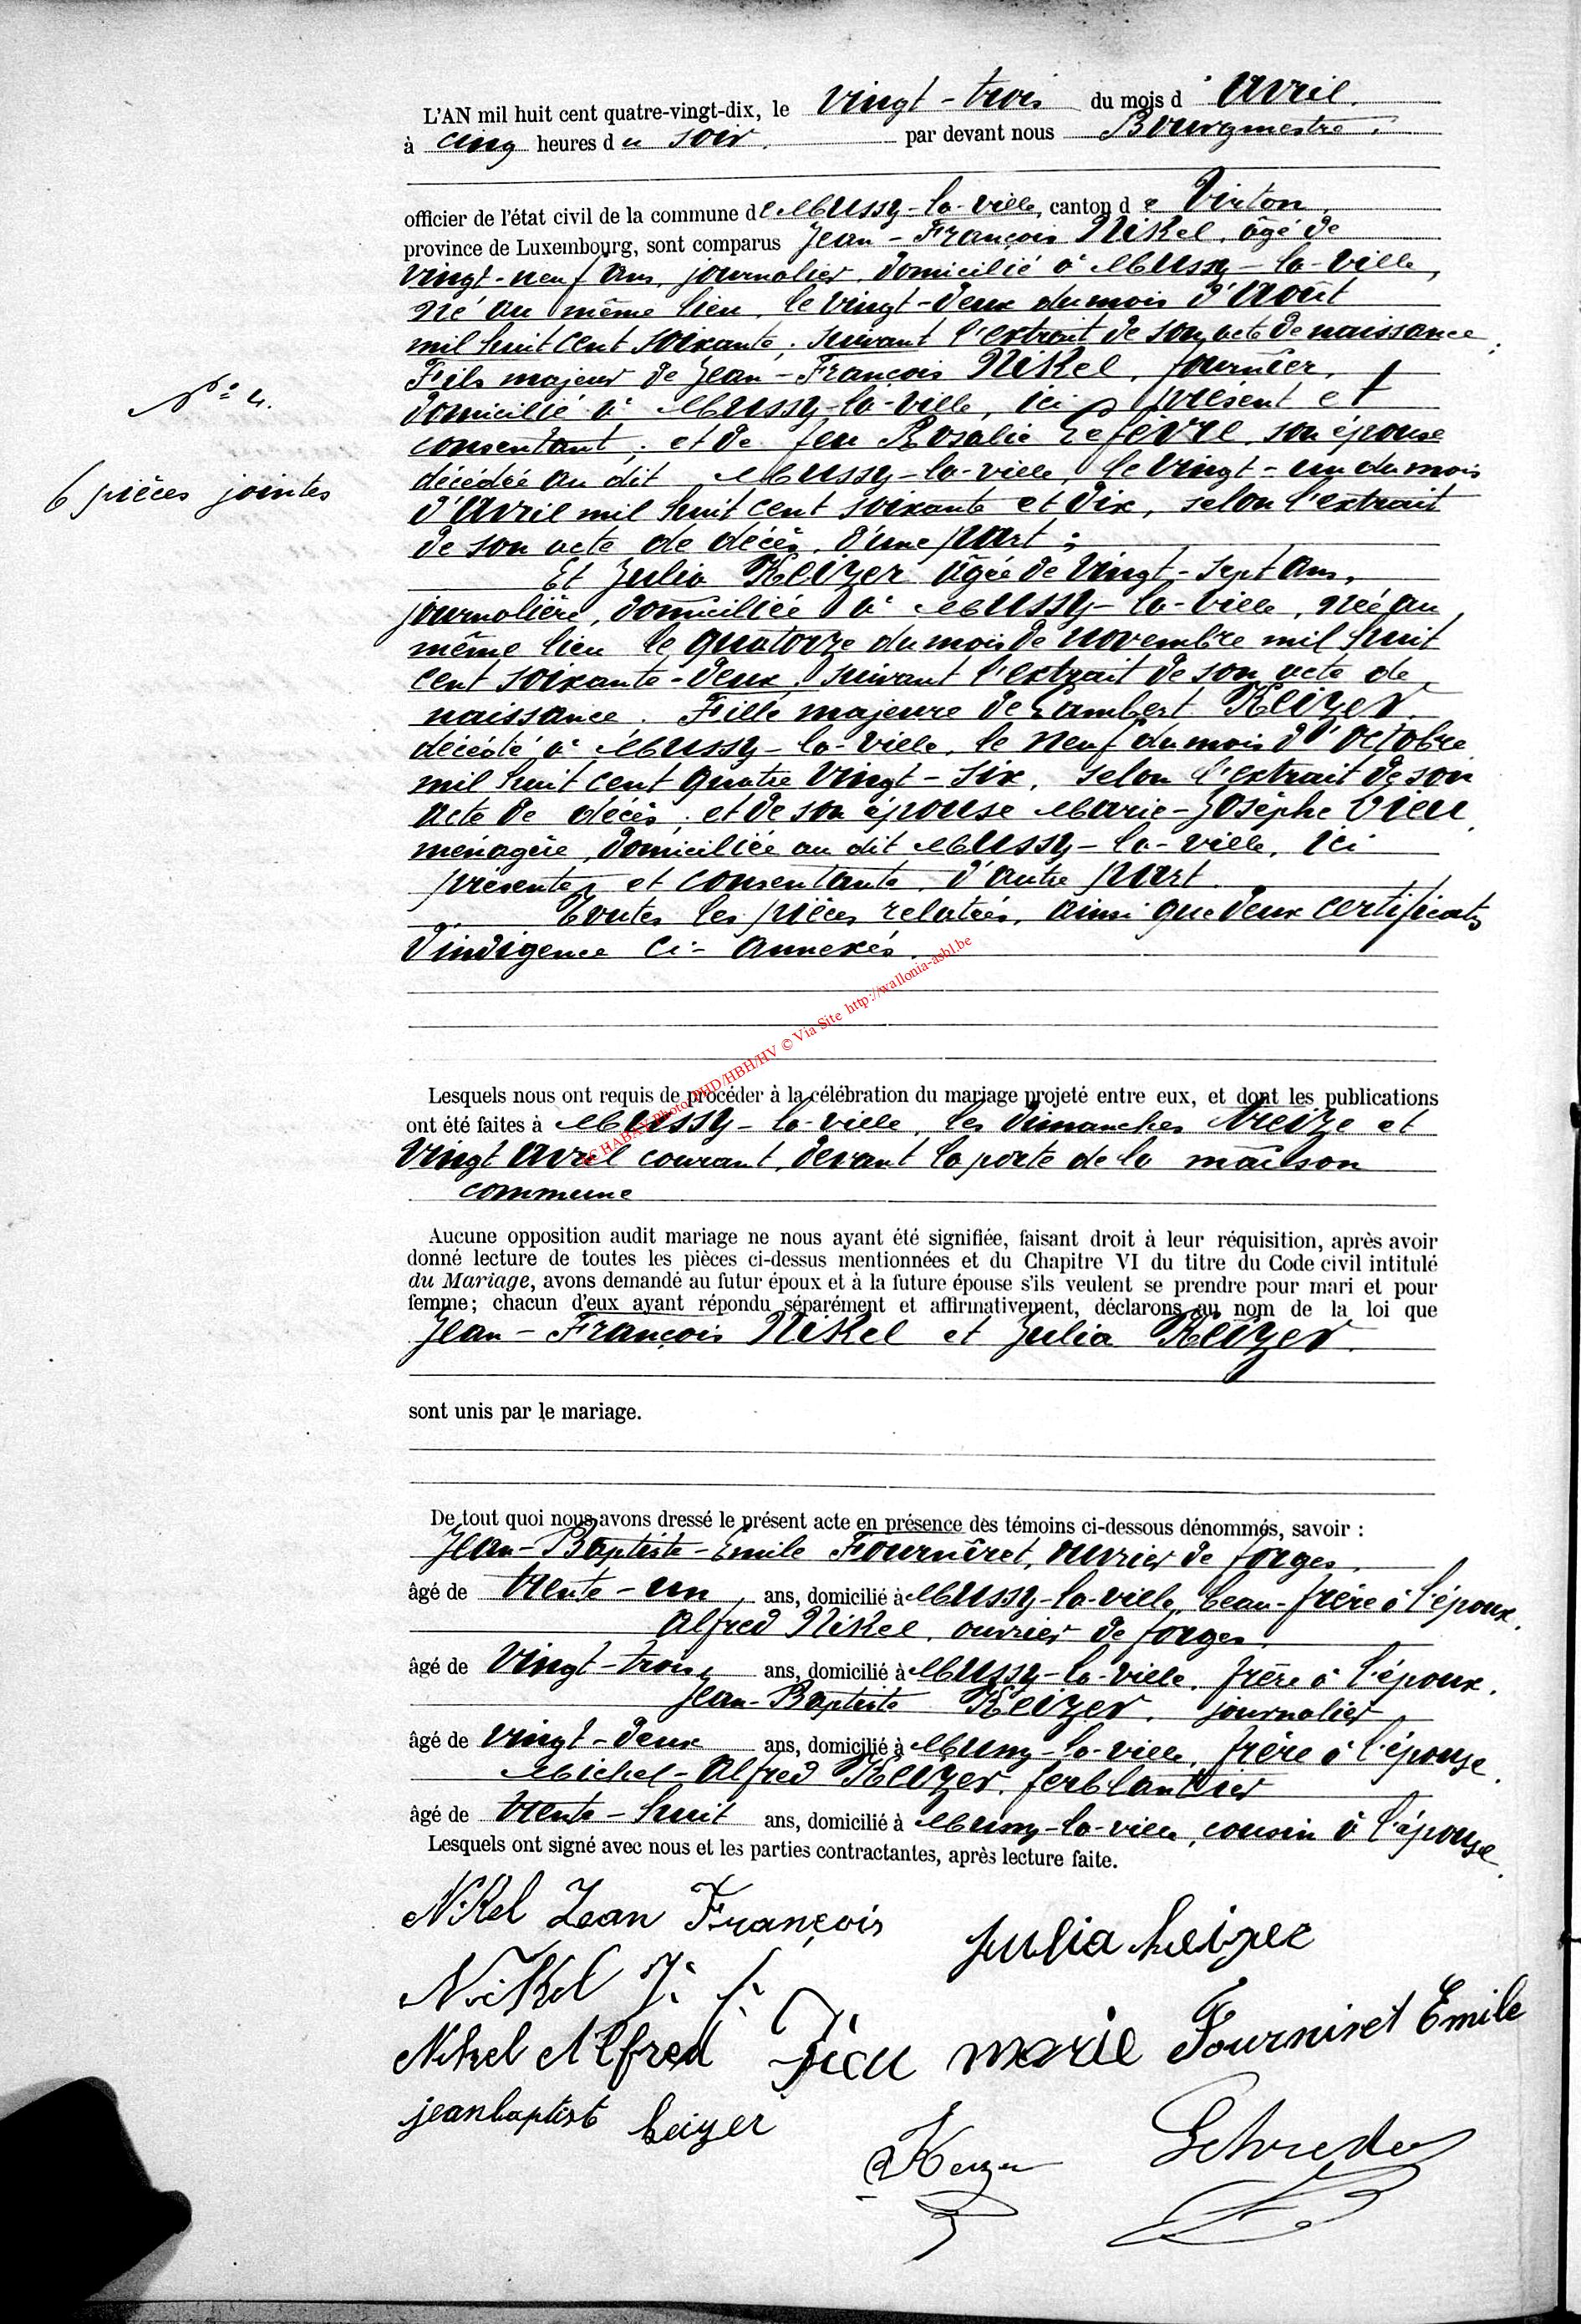 L'AN mil huit cent quatre-vingt-dix, le vingt-trois du mois d'Avril.
à cinq heures du soir. par devant nous Bourgmestre.
officier de l'état civil de la commune de Mussy-la-ville, canton de Virton.
province de Luxembourg, sont comparus Jean-François Nikel, âgé de
vingt-neuf ans, journalier, domicilié à Mussy-la-ville,
né au même lieu, le vingt-deux du mois d'Août
mil huit cent soixante, suivant l'extrait de son acte de naissance;
Fils majeur de Jean-François Nikel, journier,
N° 4.
domicilié à Mussy-la-ville, ici présent et
consentant; et de feu Rosalie Lefèvre, son épouse
décédée au dit Mussy-la-ville, le vingt-un du mois
6 pièces jointes
d'Avril mil huit cent soixante et dix, selon l'extrait
de son acte de décès, d'une part;
Et Julia Keizer âgée de vingt-sept ans,
journalière, domiciliée à Mussy-la-ville, née au
même lieu le quatorze du mois de novembre mil huit
cent soixante-deux, suivant l'extrait de son acte de
naissance. Fille majeure de Lambert Keizer
décédé à Mussy-la-ville, le neuf du mois d'octobre
mil huit cent quatre vingt-six, selon l'extrait de son
acte de décès; et de son épouse Marie-Josèphe Dieu,
ménagère, domiciliée au dit Mussy-la-ville, ici
présente et consentante, d'autre part.
Toutes les pièces relatées, ainsi que deux certificats
d'indigence ci-annexés.
Photo PHD/HBH/HV © Via Site http://wallonia-asbl.be
Lesquels nous ont requis de procéder à la célébration du mariage projeté entre eux, et dont les publications
ont été faites à Mussy-la-ville, les dimanches treize et
vingt avril courant, devant la porte de la maison
commune
Aucune opposition audit mariage ne nous ayant été signifiée, faisant droit à leur réquisition, après avoir
donné lecture de toutes les pièces ci-dessus mentionnées et du Chapitre VI du titre du Code civil intitulé
du Mariage, avons demandé au futur époux et à la future épouse s'ils veulent se prendre pour mari et pour
femme; chacun d'eux ayant répondu séparément et affirmativement, déclarons au nom de la loi que
Jean-François Nikel et Julia Keizer.
sont unis par le mariage.
De tout quoi nous avons dressé le présent acte en présence des témoins ci-dessous dénommés, savoir :
Jean-Baptiste-Emile Fournêret, ouvrier de forges,
âgé de trente-un ans, domicilié à Mussy-la-ville, beau-frère à l'époux.
Alfred Nikel, ouvrier de forges.
âgé de vingt-trois ans, domicilié à Mussy-la-ville, frère à l'époux.
Jean-Baptiste Keizer, journalier
âgé de vingt-deux ans, domicilié à Mussy-la-ville, frère à l'épouse.
Michel-Alfred Keizer, ferblantier
âgé de trente-huit ans, domicilié à Mussy-la-ville, cousin à l'épouse.
Lesquels ont signé avec nous et les parties contractantes, après lecture faite.
Nikel Jean François
Julia Keizer
Nikel J. f.
Nikel Alfred Dieu marie Fourniret Emile
jeanbaptist keizer
Schreder